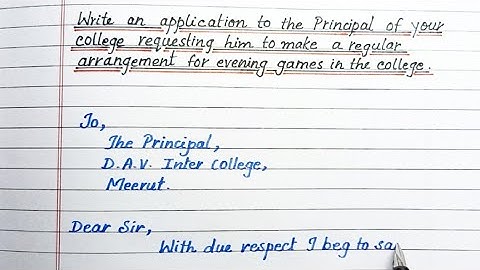 Write an application to the Principal of your
college requesting him to make a regular
arrangement for evening games in the college.
To,
The Principal,
D.A.V. Inter College,
Meerut.
Dear Sir,
With due respect I beg to sa